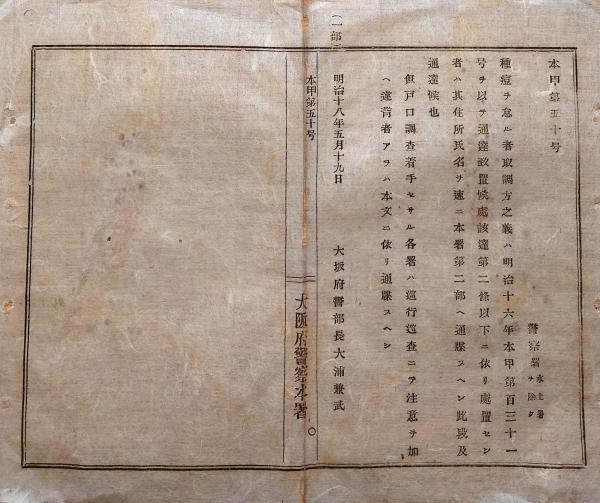 本甲第五十号
警察署 水上署ヲ除ク
種痘ヲ怠ル者取調方之義ハ明治十六年本甲第百三十一
号ヲ以テ通達致置候處該達第二條以下ニ依リ處置セシ
者ハ其住所氏名ヲ速ニ本署第二部ヘ通牒スヘシ此段及
通達候也
但戸口調査着手セサル各署ハ巡行巡査ニテ注意ヲ加
ヘ違背者アラハ本文ニ依リ通牒スヘシ
明治十八年五月十九日
大坂府警部長大浦兼武
(一部)
本甲第五十号
大阪府警察本署